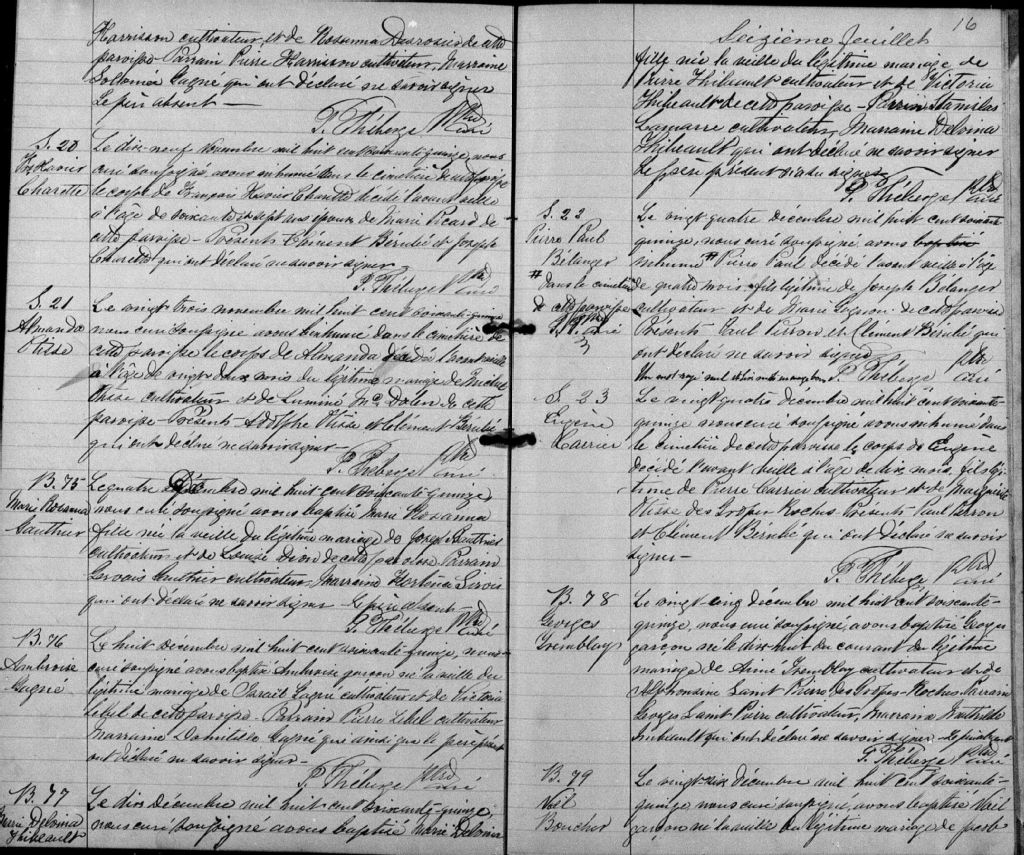 Harrisson cultivateur, et de Rosanna Desrosiers de cette
paroisse - Parrain Pierre Harrisson cultivateur, Marraine
Solomée Gagné qui ont déclaré ne savoir signer
Le père absent -
P. Théberge Ptre Curé
S. 20
Frs Xavier
Charette
Le dix-neuf novembre mil huit cent soixante quinze, nous
curé soussigné, avons inhumé dans le cimetière de cette paroisse
le corps de François Xavier Charette décédé l'avant veille
à l'âge de soixante et sept ans époux de Marie Picard de
cette paroisse - Présents Clément Bérubé et Joseph
Charette qui ont déclaré ne savoir signer
P. Théberge Ptre Curé
S. 21
Almanda
Otisse
Le vingt trois novembre mil huit cent soixante quinze
nous curé soussigné avons inhumé dans le cimetière de
cette paroisse le corps de Almanda décédée l'avant veille
à l'âge de vingt deux mois du légitime mariage de
Otisse cultivateur et de Luminé de cette
paroisse - Présents Adolphe Otisse et Clément Bérubé
qui ont déclaré ne savoir signer -
P. Théberge Ptre Curé
B. 75
Marie Rosanna
Gauthier
Le quatre Décembre mil huit cent soixante quinze
nous curé soussigné avons baptisé Marie Rosanna
fille née la veille du légitime mariage de Joseph Gauthier
cultivateur et de Louise Dion de cette paroisse Parrain
Gervais Gauthier cultivateur, Marraine Hortense
qui ont déclaré ne savoir signer Le père absent -
P. Théberge Ptre Curé
B. 76
Ambroise
Gagné
Le huit décembre mil huit cent soixante quinze, nous
curé soussigné avons baptisé Ambroise garçon né la veille du
légitime mariage de Gagné cultivateur et de Victoria
Lebel de cette paroisse - Parrain Pierre Lebel cultivateur
Marraine Domitilde Gagné qui ainsi que le père présent
ont déclaré ne savoir signer -
P. Théberge Ptre Curé
B. 77
Marie Delvina
Thibeault
Le dix décembre mil huit cent soixante-quinze,
nous curé soussigné avons baptisé Marie Delvina
16
Seizième feuillet
fille née la veille du légitime mariage de
Pierre Thibeault cultivateur et de Victoria
Thibeault de cette paroisse - Parrain Stanislas
Lamarre cultivateur, Marraine Delvina
Thibeault qui ont déclaré ne savoir signer
Le père présent
P. Théberge Ptre Curé
S. 22
Pierre Paul
Bélanger
# dans le cimetière
de cette paroisse
P. T. Ptre Curé
Le vingt quatre décembre mil huit cent soixante
quinze, nous curé soussigné avons baptisé
inhumé # Pierre Paul décédé l'avant veille à l'âge
de quatre mois, fils légitime de Joseph Bélanger
cultivateur et de Marie Gagnon de cette paroisse
Présents Paul Perron et Clément Bérubé qui
ont déclaré ne savoir signer
Un mot rayé nul P. Théberge Ptre Curé
S. 23
Eugène
Carrier
Le vingt quatre décembre mil huit cent soixante
quinze nous curé soussigné avons inhumé dans
le cimetière de cette paroisse le corps de Eugène
décédé l'avant veille à l'âge de dix mois, fils légi-
time de Pierre Carrier cultivateur et de Marguerite
Otisse des Grosses Roches Présents - Paul Perron
et Clément Bérubé qui ont déclaré ne savoir
signer -
P. Théberge Ptre Curé
B. 78
Georges
Tremblay
Le vingt cinq décembre mil huit cent soixante-
quinze, nous curé soussigné, avons baptisé Georges
garçon né le dix huit du courant du légitime
mariage de Aimé Tremblay cultivateur et de
Alphonsine Saint Pierre des Grosses-Roches Parrain
Georges Saint Pierre cultivateur, Marraine Mathilde
Imbeault qui ont déclaré ne savoir signer - Le père absent
P. Théberge Ptre Curé
B. 79
Noël
Boucher
Le vingt-six décembre mil huit cent soixante-
quinze nous curé soussigné, avons baptisé Noël
garçon né la veille du légitime mariage de